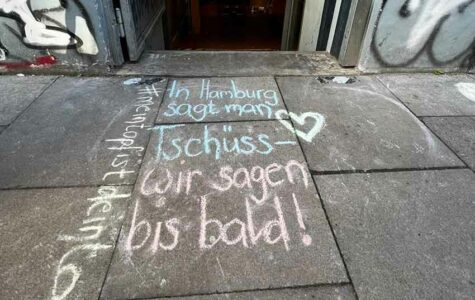 In Hamburg
sagt man
Tschüss–
wir sagen
bis bald!
#meinTopfistdeinTo